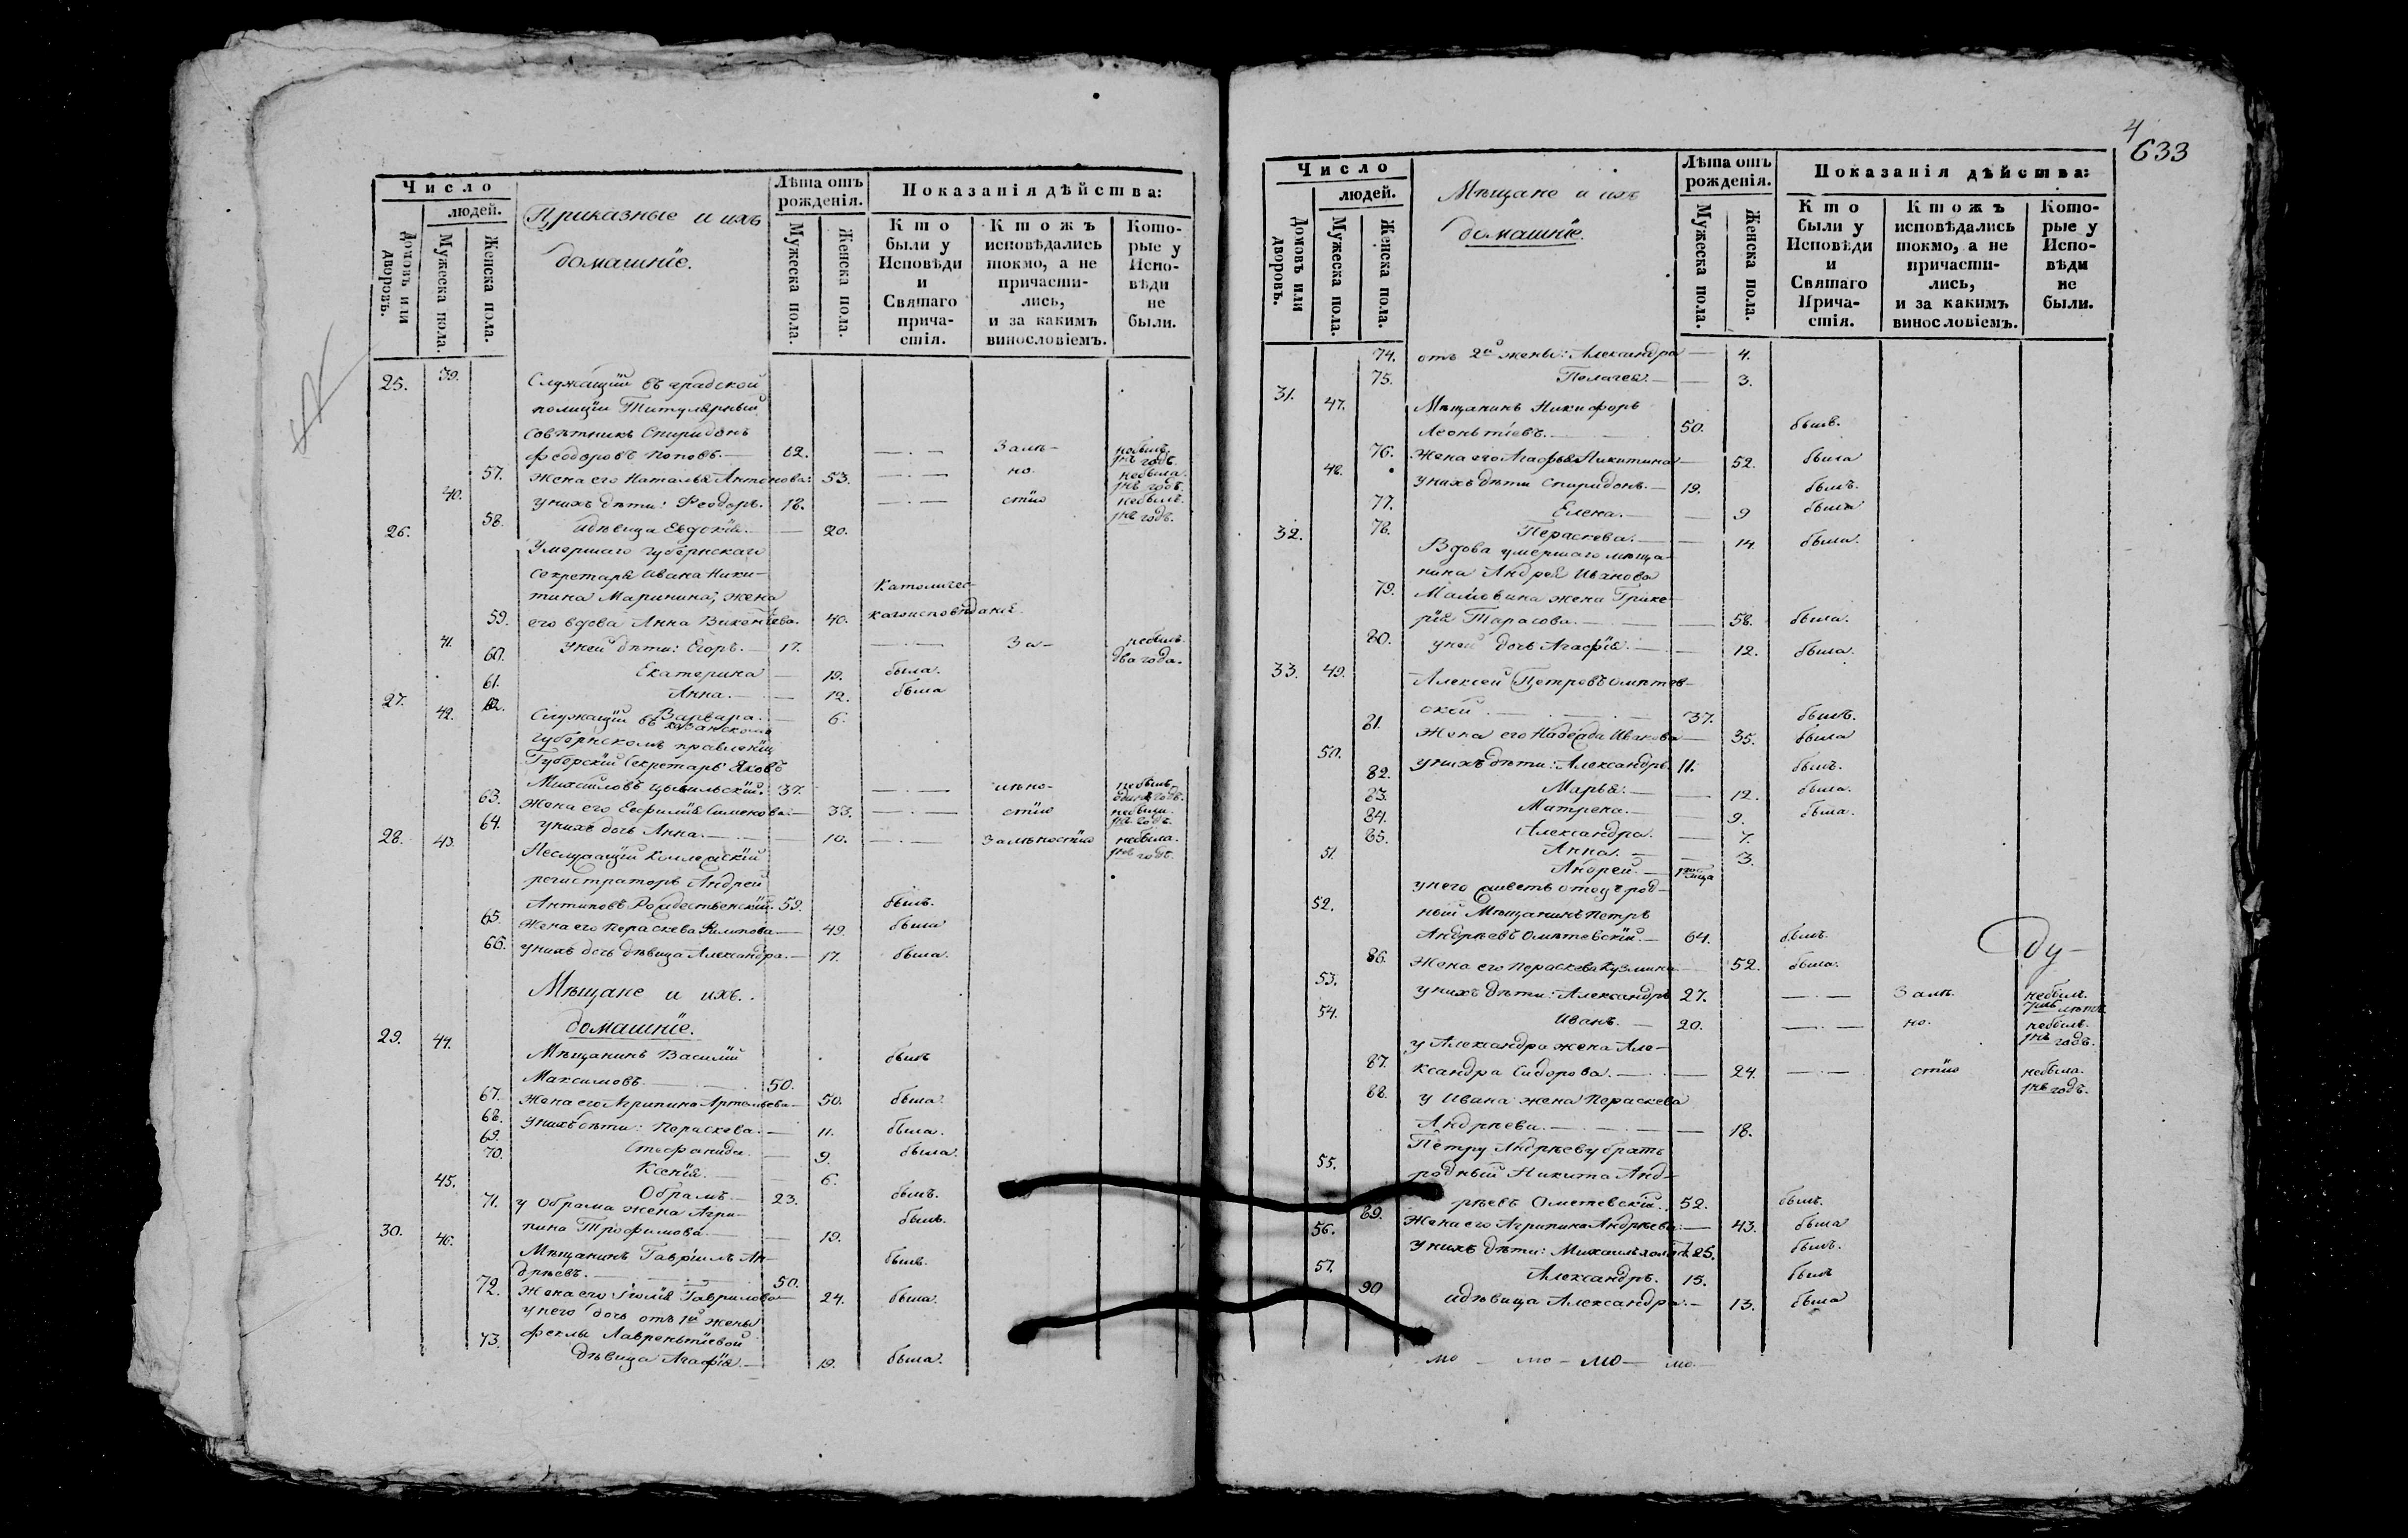 Число
людей.
Домовъ или дворовъ.
Мужеска пола.
Женска пола.
Приказные и ихъ
домашніе.
Лѣта отъ
рожденія.
Мужеска пола.
Женска пола.
Показанія дѣйства:
Кто
были у
Исповѣди
и
Святаго
прича-
стія.
Ктожъ
исповѣдались
токмо, а не
причасти-
лись,
и за какимъ
винословіемъ.
Кото-
рые у
Испо-
вѣди
не
были.
25. 39. Служащій въ градской
полиціи Титулярный
Совѣтникъ Спиридонъ
Ѳеодоровъ Поповъ. 62. Залѣ- небылъ
годъ.
57. Жена его Наталья Антонова: 53. но- небыла
годъ.
40. у нихъ дѣти: Ѳеодоръ. 18. стію небылъ.
годъ.
58. идѣвица Евдокія. 20.
26. Умершаго губернскаго
секретаря Ивана Ники-
тина Маринина, жена Католичес-
59. его вдова Анна 40. кагоисповѣданія
41. у ней дѣти: Егоръ. 17. За- небылъ
два года.
60. Екатерина 19. была.
61. Анна. 12. была
62. Варвара. 6.
27. 42. Служащій въ Казанскомъ
губернскомъ правленіи
Губерскій Секретарь Яковъ
Михайловъ Цывильскій. 37. лѣно- небылъ
одинъ годъ.
63. Жена его Евфимія Симонова 33. стію небыли.
годъ.
64. у нихъ дочь Анна. 10. Залѣностію небыла.
годъ.
28. 43. Коллежскій
регистраторъ Андрей
Антиповъ Рождественскій. 59. былъ.
65. Жена его Пераскева Филипова 49. была
66. у нихъ дочь дѣвица Александра. 17. была.
Мѣщане и ихъ.
домашніе.
29. 44. Мѣщанинъ Василій былъ
Максимовъ. 50.
67. Жена его Агрипина Артемьева 50. была.
68. у нихъ дѣти: Пераскева. 11. была.
69. Стефанида. 9. была.
70. Ксенія. 6.
45. Обрамъ. 23. былъ.
71. у Обрама жена Агри-
пина Трофимова. 19. былъ.
30. 46. Мѣщанинъ Гавріилъ Ан-
дрѣевъ. 50. былъ.
72. Жена его Гаврилова 24. была.
у него дочь отъ 1й жены
73. Ѳеклы Лаврентіевой
дѣвица Агафія. 19. была.
4
633
Число
людей.
Домовъ или дворовъ.
Мужеска пола.
Женска пола.
Мѣщане и ихъ
домашніе.
Лѣта отъ
рожденія.
Мужеска пола.
Женска пола.
Показанія дѣйства:
Кто
были у
Исповѣди
и
Святаго
Прича-
стія.
Ктожъ
исповѣдались
токмо, а не
причасти-
лись,
и за какимъ
винословіемъ.
Кото-
рые у
Испо-
вѣди
не
были.
74. отъ 2й жены: Александра 4.
75. Пелагея. 3.
31. 47. Мѣщанинъ Никифоръ
Леоньтіевъ. 50. былъ.
76. Жена его Агафья Никитина 52. была
48. у нихъ дѣти Спиридонъ. 19. былъ.
77. Елена. 9 была
78. Пераскева. 14. была.
32. Вдова умершаго мѣща-
нина Андрея Иванова
79. жена Глике-
рія Тарасова. 58. была.
80. у ней дочь Агафія. 12. была.
33. 49. Алексей Петровъ Омѣтев-
ской. 37. былъ.
81. Жена его Надежда Иванова 35. была
50. у нихъ дѣти: Александръ. 11. былъ.
82. Марья. 12. была.
83. Матрена. 9. была.
84. Александра. 7.
85. Анна. 3.
51. Андрей.
у него живетъ отецъ род-
52. ный Мѣщанинъ Петръ
Андрѣевъ Омѣтевскій. 64. былъ.
86. Жена его Пераскева Кузмина 52. была.
53. у нихъ дѣти: Александръ 27. Залѣ- небылъ.
54. Иванъ. 20. но- небылъ.
годъ.
у Александра жена Але-
87. ксандра Сидорова. 24. стію небыла.
годъ.
88. у Ивана жена Пераскева
Андрѣева. 18.
Петру Андрѣеву братъ
55. родный Никита Анд-
рѣевъ Ометевскій. 52. былъ.
89. Жена его Агрипина Андрѣева 43. была
56. у нихъ дѣти: Михаилъ холостъ 25. былъ.
57. Александръ. 15. былъ
90 идѣвица Александра 13. была
Ду-